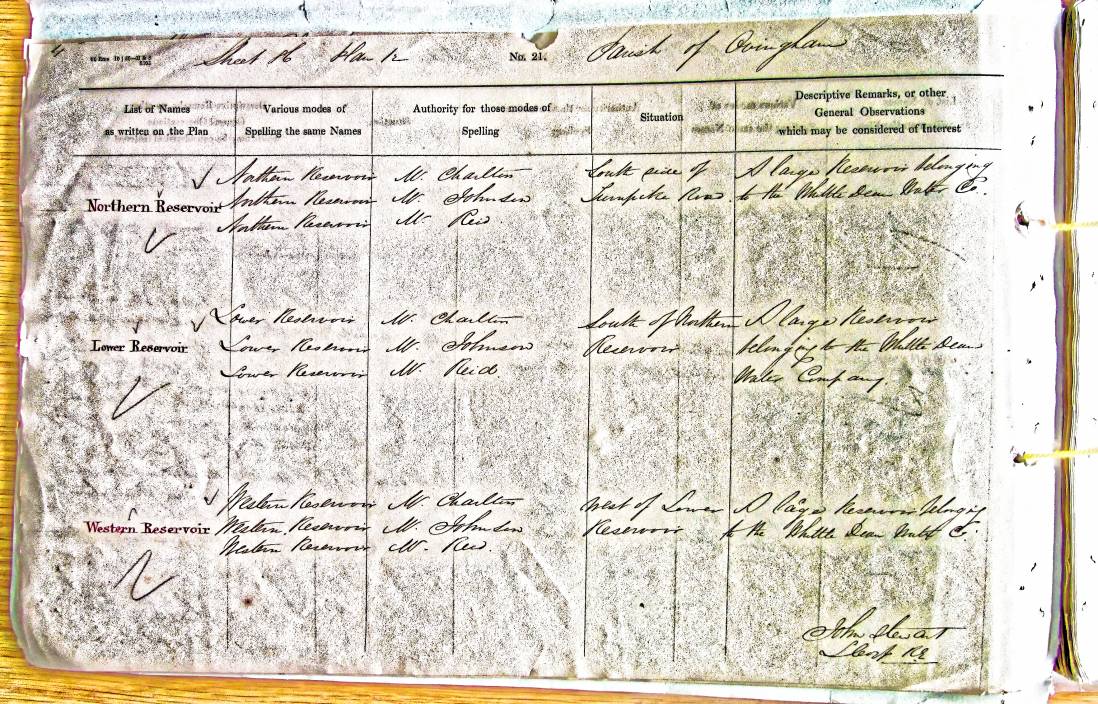 4
Sheet No. 21. Parish of Ovingham
List of Names
as written on the Plan
Various modes of
Spelling the same Names
Authority for those modes of
Spelling
Situation
Descriptive Remarks, or other
General Observations
which may be considered of Interest
Northern Reservoir
Northern Reservoir
Northern Reservoir
Northern Reservoir
Mr. Charlton
Mr. Johnson
Mr. Reid
South side of
Turnpike Road.
A large Reservoir belonging
to the Whittle Dean Water Co.
Lower Reservoir
Lower Reservoir
Lower Reservoir
Lower Reservoir
Mr. Charlton
Mr. Johnson
Mr. Reid.
South of Northern
Reservoir
A large Reservoir
belonging to the Whittle Dean
Water Company.
Western Reservoir
Western Reservoir
Western Reservoir
Western Reservoir
Mr. Charlton
Mr. Johnson
Mr. Reid.
West of Lower
Reservoir
A large Reservoir belonging
to the Whittle Dean Water Co.
John Stewart
L Corpl RE